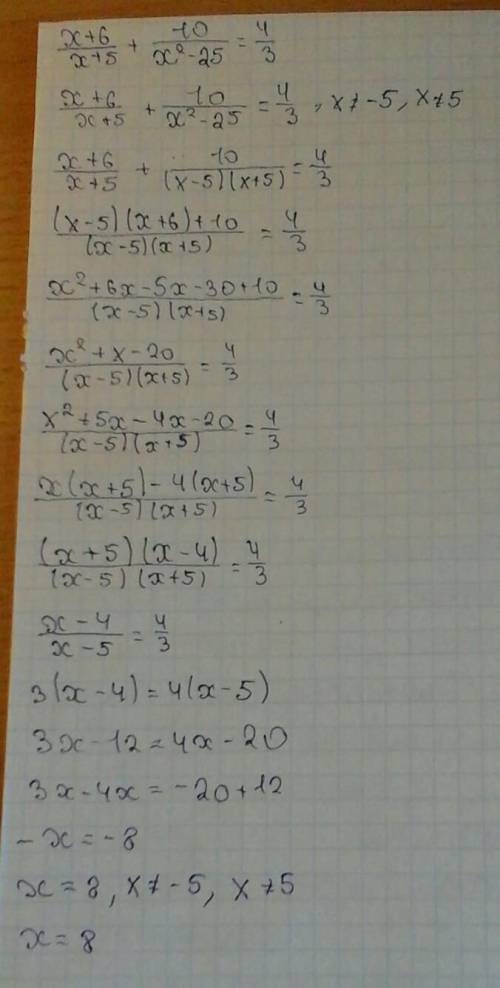 (x+6)/(x+5) + 10/(x²-25) = 4/3
(x+6)/(x+5) + 10/(x²-25) = 4/3, x≠-5, x≠5
(x+6)/(x+5) + 10/((x-5)(x+5)) = 4/3
((x-5)(x+6)+10)/((x-5)(x+5)) = 4/3
(x²+6x-5x-30+10)/((x-5)(x+5)) = 4/3
(x²+x-20)/((x-5)(x+5)) = 4/3
(x²+5x-4x-20)/((x-5)(x+5)) = 4/3
(x(x+5)-4(x+5))/((x-5)(x+5)) = 4/3
((x+5)(x-4))/((x-5)(x+5)) = 4/3
(x-4)/(x-5) = 4/3
3(x-4)=4(x-5)
3x-12=4x-20
3x-4x=-20+12
-x=-8
x=8, x≠-5, x≠5
x=8